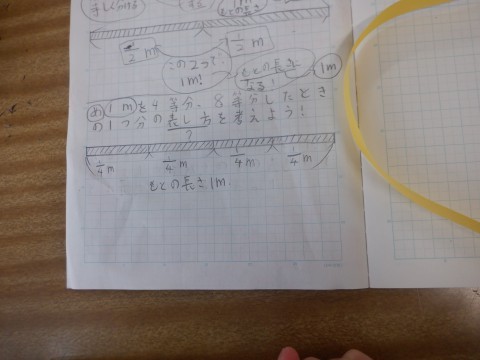 1/2 m
1/2 m
この2つで
1m!
もとの長さ
なる!
1m
め 1mを4等分、8等分したとき
の1つ分の表し方を考えよう!
?
1/4 m
1/4 m
1/4 m
1/4 m
もとの長さ1m.